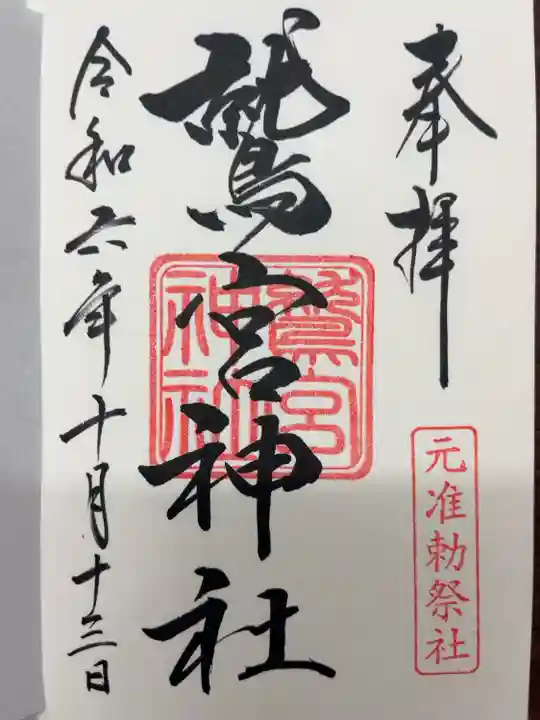 奉拝
元准勅祭社
鷲宮神社
鷲宮
神社
令和六年十月十三日